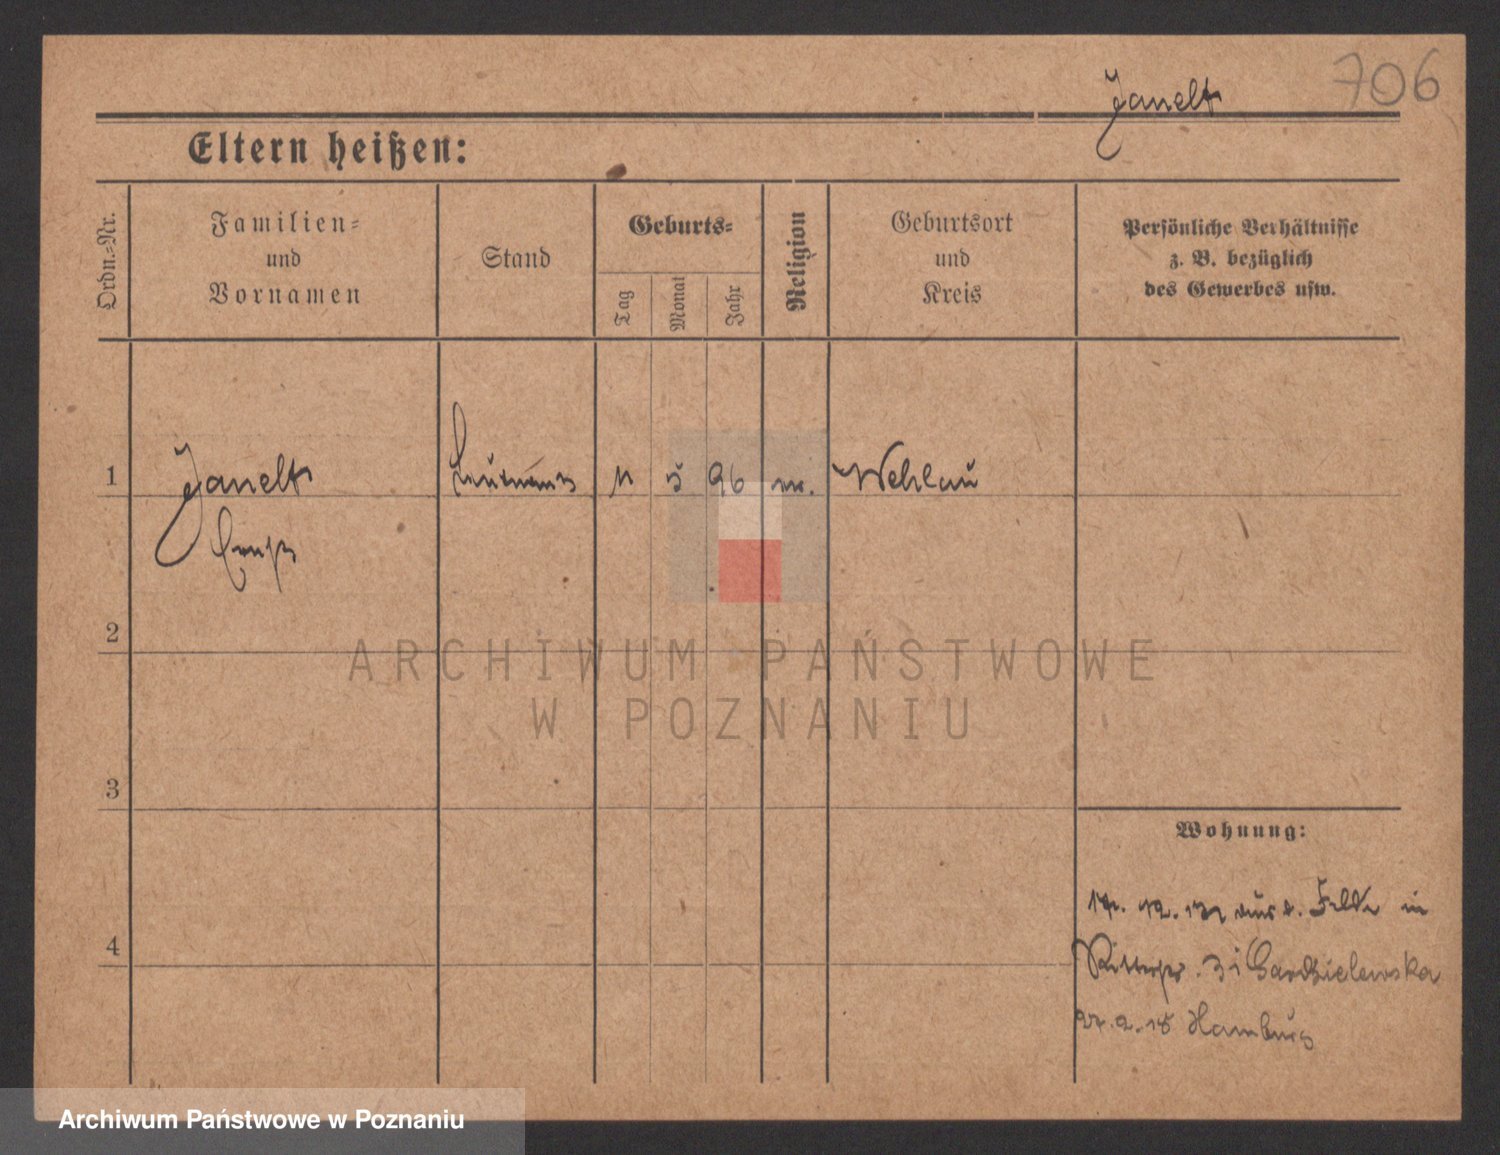 706
Janelt
Eltern heißen:
Ordn.-Nr.
Familien-
und
Vornamen
Stand
Geburts-
Tag
Monat
Jahr
Religion
Geburtsort
und
Kreis
Persönliche Verhältnisse
z. B. bezüglich
des Gewerbes usw.
1 Janelt Leutnant 11 5 96 ev. Wehlau
Ernst
2
ARCHIWUM PAŃSTWOWE
W POZNANIU
3
Wohnung:
12. aus d. Felde in
4
Ritterstr. 3 i Gardzielewska
2. 18 Hamburg
Archiwum Państwowe w Poznaniu